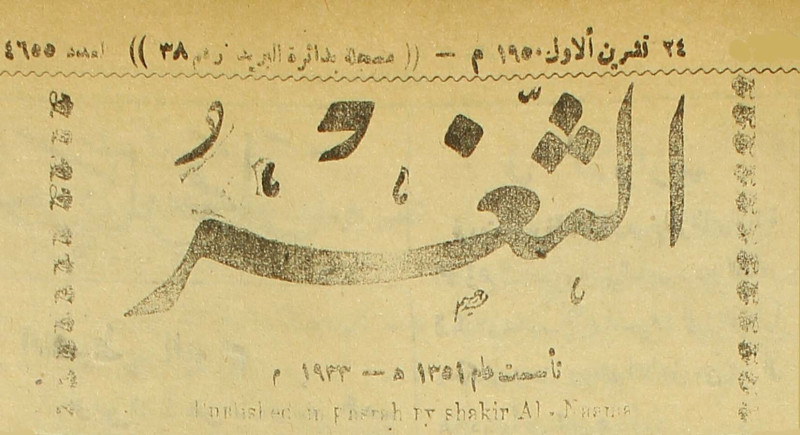 ٢٤ تشرين الاول ١٩٥٠ م — (( مسجلة بدائرة البريد رقم ٣٨ )) العدد ٤٦٥٥
الثغر
تأسست عام ١٣٥١ ه — ١٩٣٣ م
Published in Basrah by shakir Al - Naama